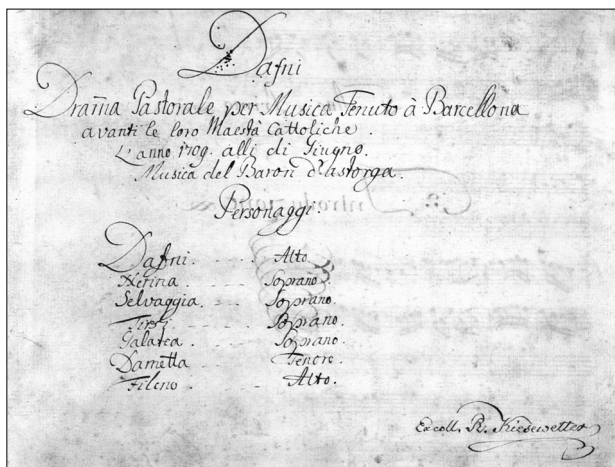 Dafni
Dram̃a Pastorale per Musica Tenuto à Barcellona
avanti le loro Maestà Cattoliche.
L'anno 1709. alli di Giugno.
Musica del Baron d'astorga.
Personaggi.
Dafni. Alto.
Nerina Soprano.
Selvaggia. Soprano.
Tirsi Soprano.
Galatea Soprano.
Dametta Tenore.
Fileno Alto.
Ex coll. R. Kiesewetter